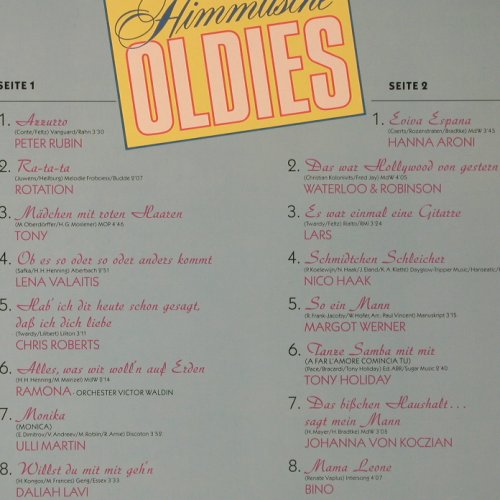 Himmlische
OLDIES
SEITE 1
1. Azzurro
(Conte/Feltz) Vanguard/Rahn 3'30
PETER RUBIN
2. Ra-ta-ta
(Juwens/Heilburg) Melodie Froboess/Budde 2'07
ROTATION
3. Mädchen mit roten Haaren
(M. Oberdörffer/H.G. Moslener) MOP 4'46
TONY
4. Ob es so oder so oder anders kommt
(Safka/H.H. Henning) Aberbach 2'51
LENA VALAITIS
5. Hab' ich dir heute schon gesagt,
daß ich dich liebe
(Twardy/Lilibert) Uilton 3'11
CHRIS ROBERTS
6. Alles, was wir woll'n auf Erden
(H.H. Henning/M. Menzel) MdW 2'14
RAMONA - ORCHESTER VICTOR WALDIN
7. Monika
(MONICA)
(E. Dimitrov/V. Andreev/M. Robin/R. Arnie) Discoton 3'52
ULLI MARTIN
8. Willst du mit mir geh'n
(H. Kongos/M. Frances) Geng/Essex 3'33
DALIAH LAVI
SEITE 2
1. Eviva Espana
(Caerts/Rozenstraten/Bradtke) MdW 3'45
HANNA ARONI
2. Das war Hollywood von gestern
(Christian Kolonovits/Fred Jay) MdW 4'05
WATERLOO & ROBINSON
3. Es war einmal eine Gitarre
(Twardy/Feltz) Rialto/RMI 3'24
LARS
4. Schmidtchen Schleicher
(P. Koelewijn/N. Haak/J. Eland/K. A. Kleth) Dayglow-Tripper Music/Hanseatic/
NICO HAAK
5. So ein Mann
(R. Frank-Jacoby/W. Hofer, Arr. Paul Vincent) Manuskript 3'15
MARGOT WERNER
6. Tanze Samba mit mir
(A FAR L'AMORE COMINCIA TU)
(Pace/Bracardi/Tony Holiday) Ed. ABR/Sugar Music 2'40
TONY HOLIDAY
7. Das bißchen Haushalt...
sagt mein Mann
(H. Mayer/H. Bradtke) MdW 3'05
JOHANNA VON KOCZIAN
8. Mama Leone
(Renate Vaplus) Intersong 4'07
BINO